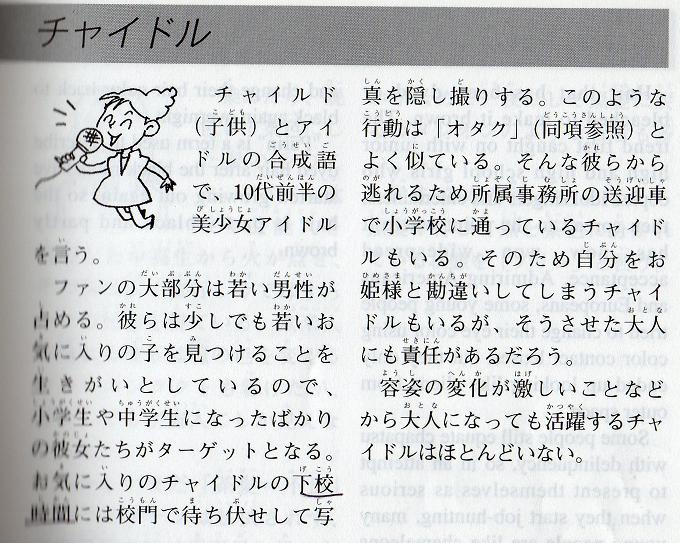 チャイドル
チャイルド
(子供)とアイ
ドルの合成語
で、10代前半の
美少女アイドル
を言う。
ファンの大部分は若い男性が
占める。彼らは少しでも若いお
気に入りの子を見つけることを
生きがいとしているので、
小学生や中学生になったばかり
の彼女たちがターゲットとなる。
お気に入りのチャイドルの下校
時間には校門で待ち伏せして写
真を隠し撮りする。このような
行動は「オタク」(同項参照)と
よく似ている。そんな彼らから
逃れるため所属事務所の送迎車
で小学校に通っているチャイド
ルもいる。そのため自分をお
姫様と勘違いしてしまうチャイ
ドルもいるが、そうさせた大人
にも責任があるだろう。
容姿の変化が激しいことなど
から大人になっても活躍するチャ
イドルはほとんどいない。